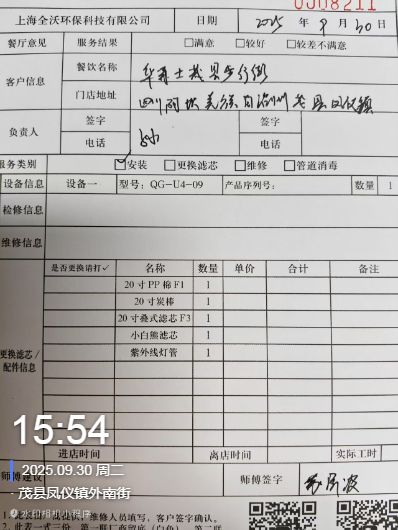 0508211
上海全沃环保科技有限公司 日期 2025 年 9 月 30 日
餐厅意见 服务结果 □满意 □较好 □较差不满意
客户信息 餐饮名称
门店地址 四川阿坝羌族自治州茂县凤仪镇
负责人 签字
电话
服务类别 ☑安装 □更换滤芯 □维修 □管道消毒
设备信息 设备一 型号：QG-U4-09 产品序列号： 数量 1
检修信息
维修信息
是否更换请打✓ 名称 数量 单价 合计 备注
20寸PP棉F1 1
20寸炭棒 1
20寸叠式滤芯F3 1
小白熊滤芯 1
紫外线灯管 1
更换滤芯/
配件信息
进店时间 离店时间 实际工时
师傅建议 师傅签字
15:54
2025.09.30 周二
茂县凤仪镇外南街
水印相机小程序
维修人员填写，客户签字确认。